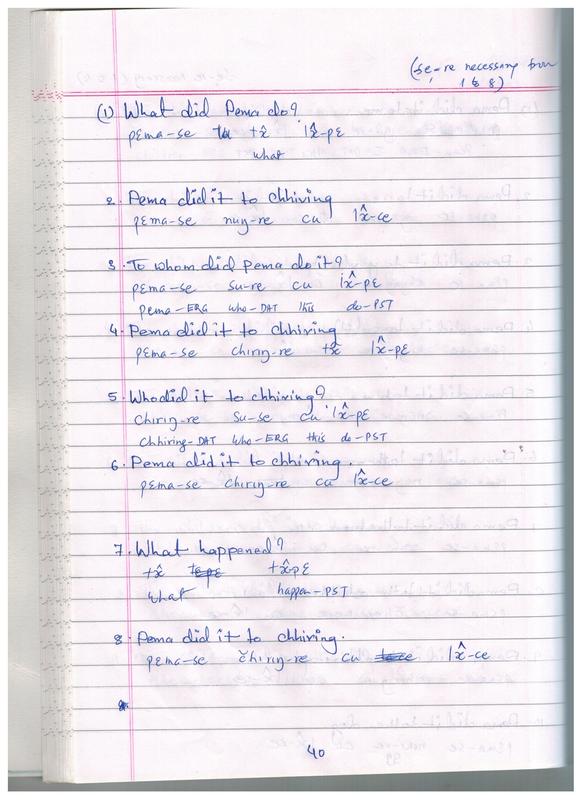 (se-re necessary from
1 to 8)
(1) What did Pema do?
pɛma-se tx̂ lx̂-pɛ
what
2. Pema did it to chhiring
pɛma-se nuŋ-re cu lx̂-ce
3. To whom did Pema do it?
pɛma-se su-re cu lx̂-pɛ
pema-ERG who-DAT this do-PST
4. Pema did it to chhiring
pɛma-se chiriŋ-re tx̂ lx̂-pɛ
5. Who did it to chhiring?
chiriŋ-re su-se cu lx̂-pɛ
Chhiring-DAT who-ERG this do-PST
6. Pema did it to chhiring.
pɛma-se chiriŋ-re cu lx̂-ce
7. What happened?
tx̂ tx̂pɛ
what happen-PST
8. Pema did it to chhiring.
pɛma-se čhiriŋ-re cu lx̂-ce
40